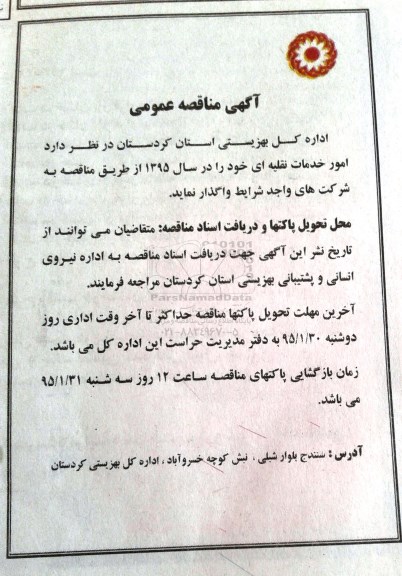 آگهی مناقصه عمومی
اداره کل بهزیستی استان کردستان در نظر دارد
امور خدمات نقلیه ای خود را در سال ۱۳۹۵ از طریق مناقصه به
شرکت های واجد شرایط واگذار نماید.
محل تحویل پاکتها و دریافت اسناد مناقصه: متقاضیان می توانند از
تاریخ نشر این آگهی جهت دریافت اسناد مناقصه به اداره نیروی
انسانی و پشتیبانی بهزیستی استان کردستان مراجعه فرمایند.
ParsNamadData
آخرین مهلت تحویل پاکتها مناقصه حداکثر تا آخر وقت اداری روز
دوشنبه ۹۵/۱/۳۰ به دفتر مدیریت حراست این اداره کل می باشد.
زمان بازگشایی پاکتهای مناقصه ساعت ۱۲ روز سه شنبه ۹۵/۱/۳۱
می باشد.
آدرس : سنندج بلوار شبلی ، نبش کوچه خسروآباد ، اداره کل بهزیستی کردستان